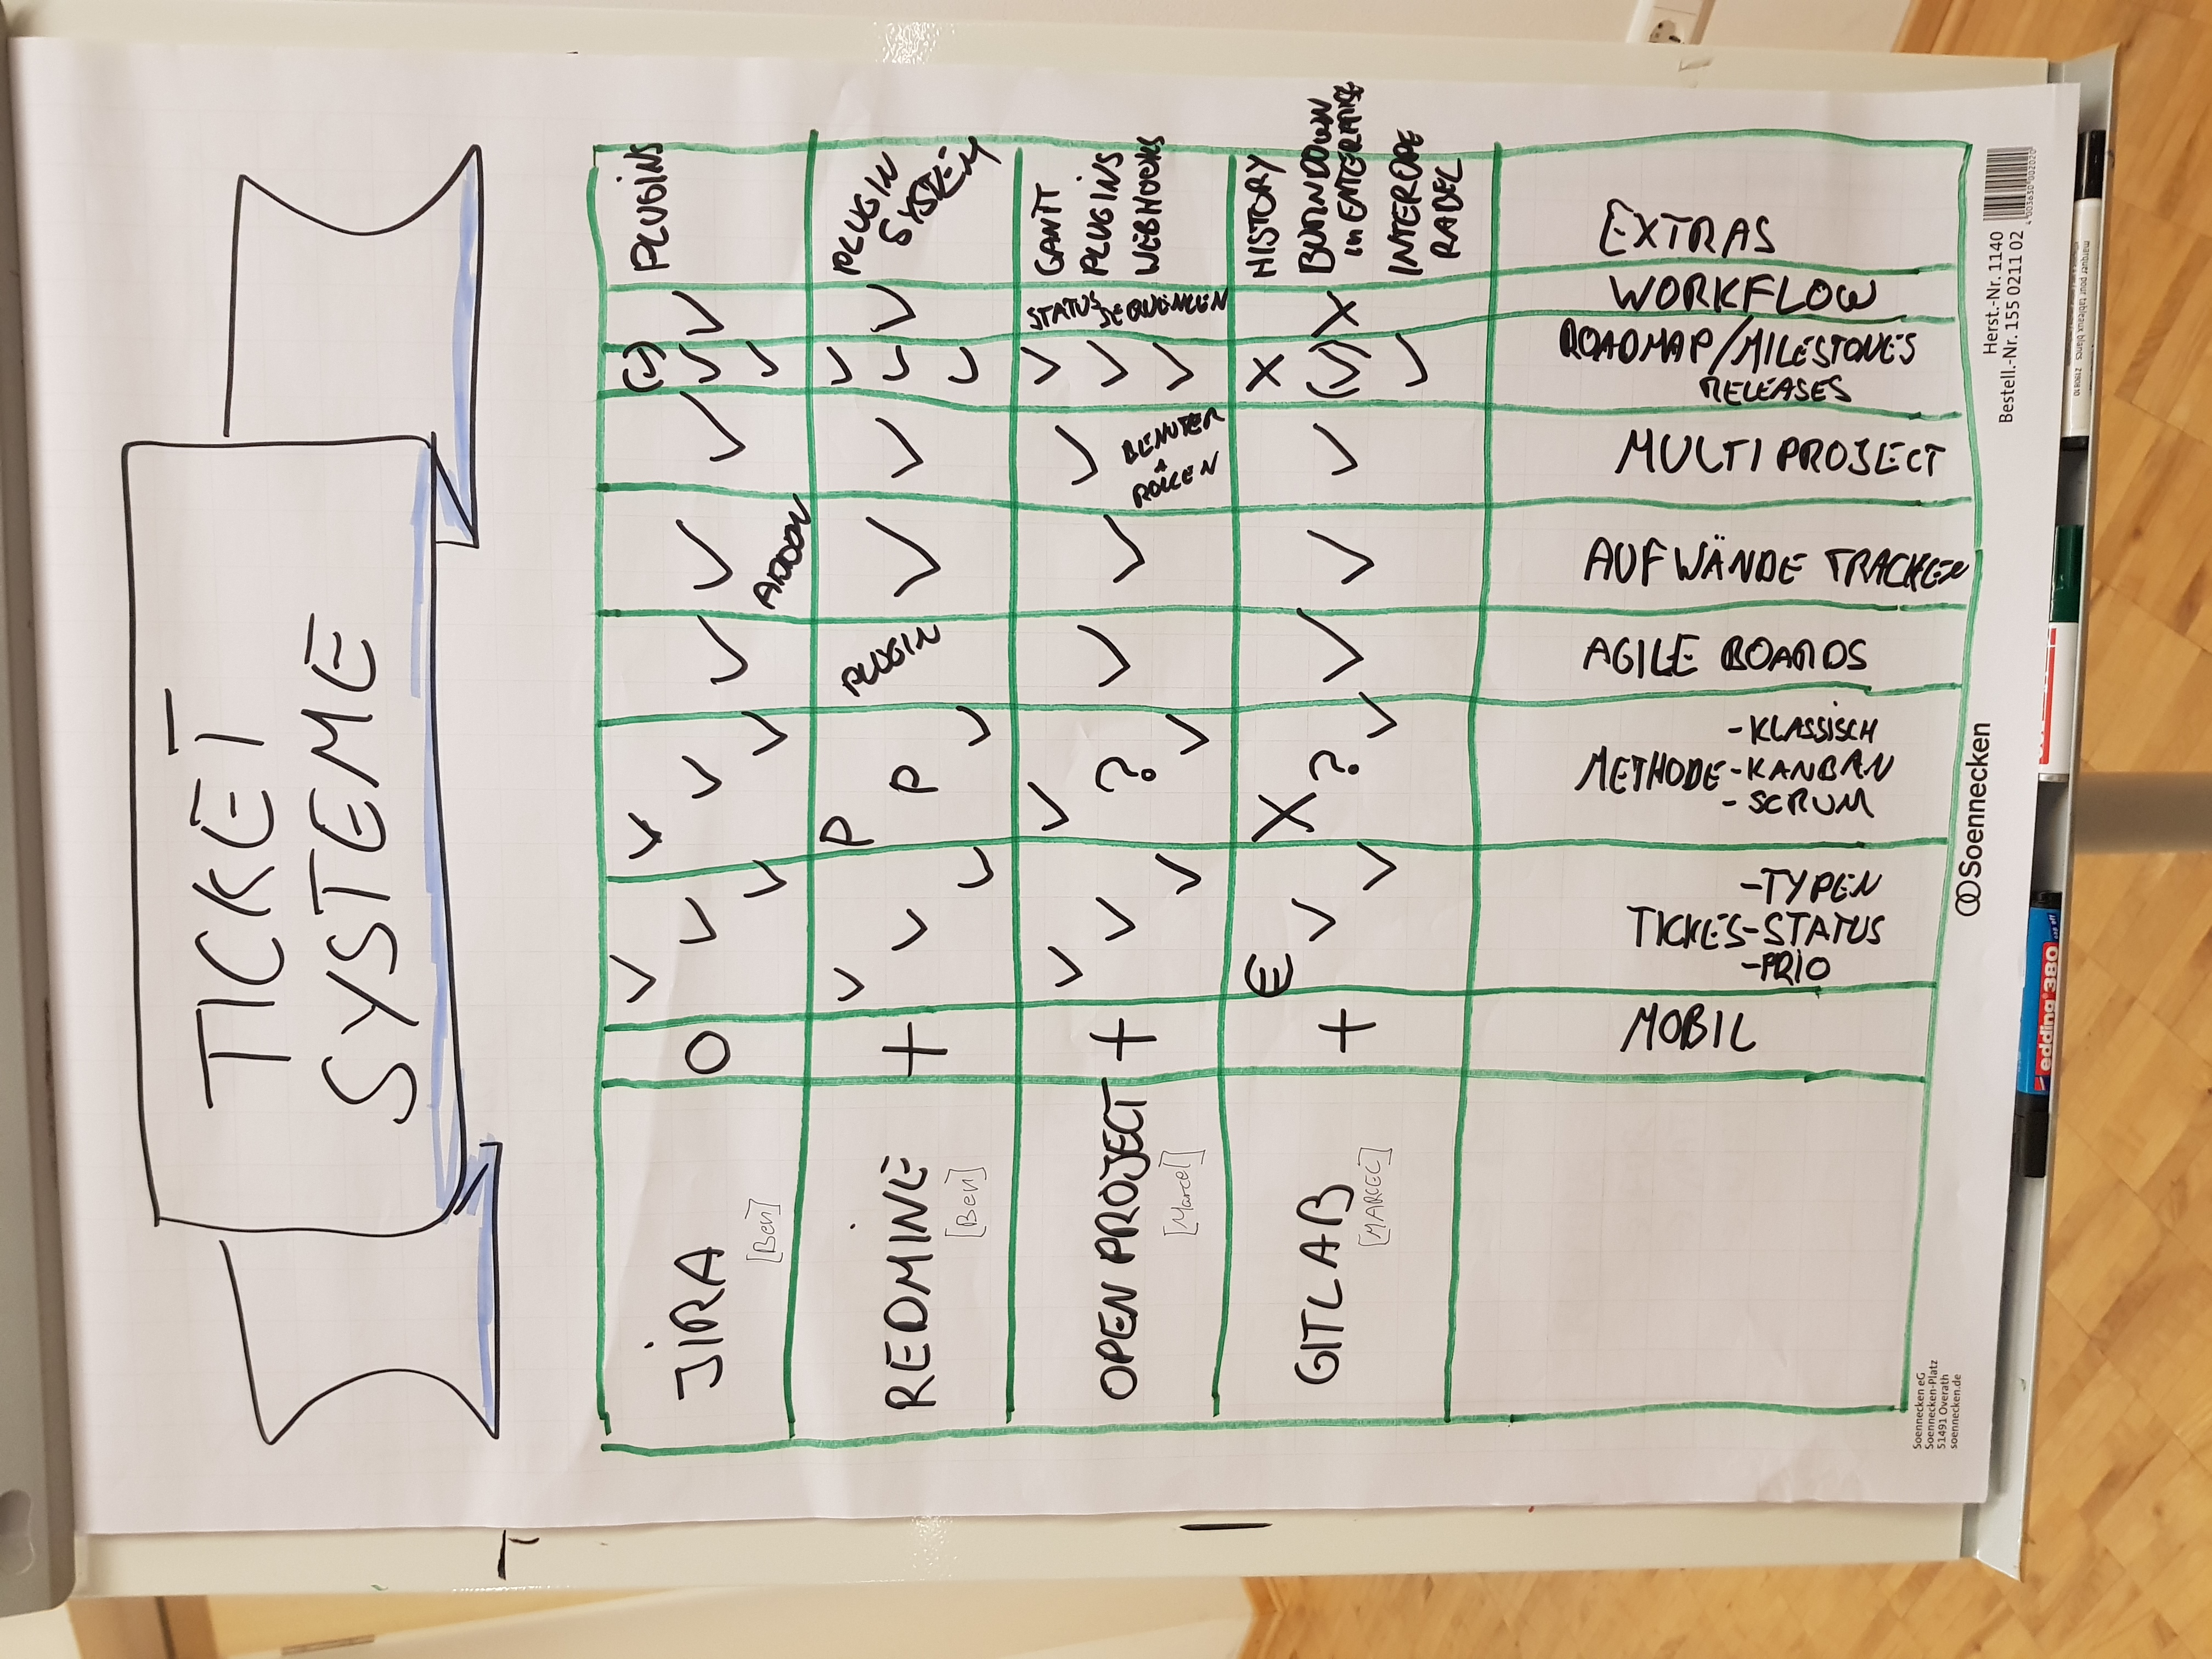 TICKET
SYSTEME
JiRA
[Ben]
O
✓
✓
✓
✓
✓
✓
✓
✓
ADDON
✓
(✓)
✓
✓
✓
PLUGiNS
REDMiNE
[Ben]
+
✓
✓
✓
P
P
✓
PLUGIN
✓
✓
✓
✓
✓
✓
PLUGIN
SYSTEM
OPEN PROJECT
[Marcel]
+
✓
✓
✓
✓
?
✓
✓
✓
✓
BENUTZER
+
ROLLEN
✓
✓
✓
GANTT
PLUGiNS
WEBHOOKS
GITLAB
[MARCEL]
+
€
✓
✓
X
?
✓
✓
✓
✓
X
(✓)
✓
X
HISTORY
BURNDOWN
in ENTERPRISE
INTEROPE
RABEL
MOBIL
-TYPEN
TICKETS-STATUS
-PRIO
-KLASSiSCH
METHODE-KANBAN
-SCRUM
AGILE BOARDS
AUFWÄNDE TRACKEN
MULTI PROJECT
ROADMAP/MILESTONES
RELEASES
WORKFLOW
EXTRAS
Soennecken eG
Soennecken-Platz
51491 Overath
soennecken.de
Soennecken
Herst.-Nr. 1140
Bestell.-Nr. 155 0211 02
4 003630 002020
edding 380
cap off
marquer pour tableaux blancs